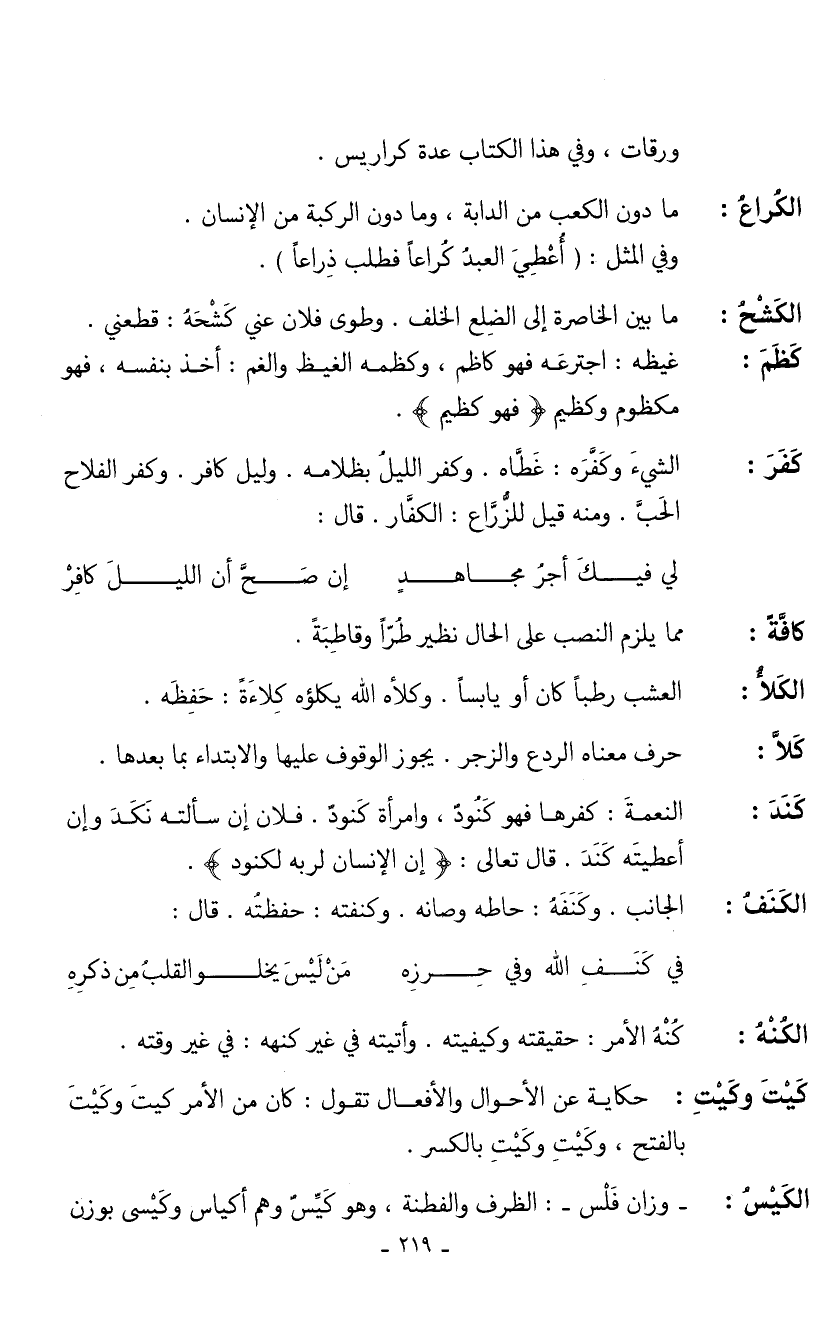 ورقات ، وفي هذا الكتاب عدة كراريس .
الكُراعُ : ما دون الكعب من الدابة ، وما دون الركبة من الإنسان .
وفي المثل : ( أُعْطِيَ العبدُ كُراعاً فطلب ذِراعاً ) .
الكَشْحُ : ما بين الخاصرة إلى الضِلع الخلف . وطوى فلان عني كَشْحَهُ : قطعني .
كَظَمَ : غيظه : اجترعَه فهو كاظم ، وكظمه الغيظ والغم : أخذ بنفسه ، فهو
مكظوم وكظيم ﴿ فهو كظيم ﴾ .
كَفَرَ : الشيءَ وكَفَّرَه : غَطَّاه . وكفر الليلُ بظلامه . وليل كافر . وكفر الفلاح
الحَبَّ . ومنه قيل للزُّرَّاع : الكفَّار . قال :
لي فيكَ أجرُ مجاهدٍ إن صَحَّ أن الليلَ كافِرْ
كافَّةً : مما يلزم النصب على الحال نظير طُرّاً وقاطِبَةً .
الكَلأُ : العشب رطباً كان أو يابساً . وكلأه الله يكلؤه كِلاءَةً : حَفِظَه .
كَلاَّ : حرف معناه الردع والزجر . يجوز الوقوف عليها والابتداء بما بعدها .
كَنَدَ : النعمةَ : كفرها فهو كَنُودٌ ، وامرأة كَنودٌ . فلان إن سألته نَكَدَ وإن
أعطيتَه كَنَدَ . قال تعالى : ﴿ إن الإنسان لربه لكنود ﴾ .
الكَنَفُ : الجانب . وكَنَفَهُ : حاطه وصانه . وكنفته : حفظتُه . قال :
في كَنَفِ الله وفي حِرزِه مَنْ لَيْسَ يخلو القلبُ مِن ذكرِهِ
الكُنْهُ : كُنْهُ الأمر : حقيقته وكيفيته . وأتيته في غير كنهه : في غير وقته .
كَيْتَ وكَيْتِ : حكاية عن الأحوال والأفعال تقول : كان من الأمر كيتَ وكَيْتَ
بالفتح ، وكَيْتِ وكَيْتِ بالكسر .
الكَيْسُ : ـ وزان فَلْس ـ : الظرف والفطنة ، وهو كَيِّسٌ وهم أكياس وكَيْسى بوزن
ـ ٢١٩ ـ